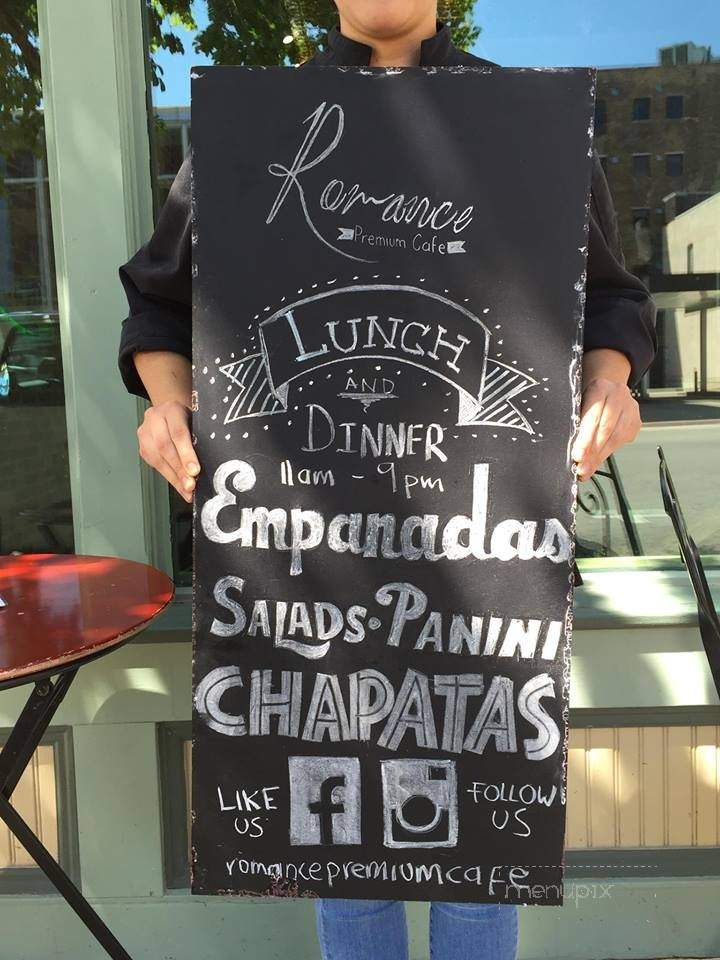 Romance
Premium Cafe
LUNCH
AND
DINNER
11am - 9pm
Empanadas
SALADS • PANINI
CHAPATAS
LIKE US
FOLLOW US
romancepremiumcafe
menupix